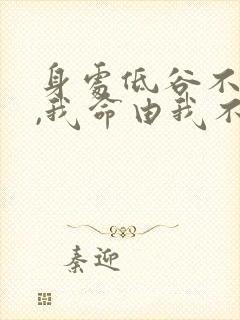 身处低谷不
,我命由我不
秦迎